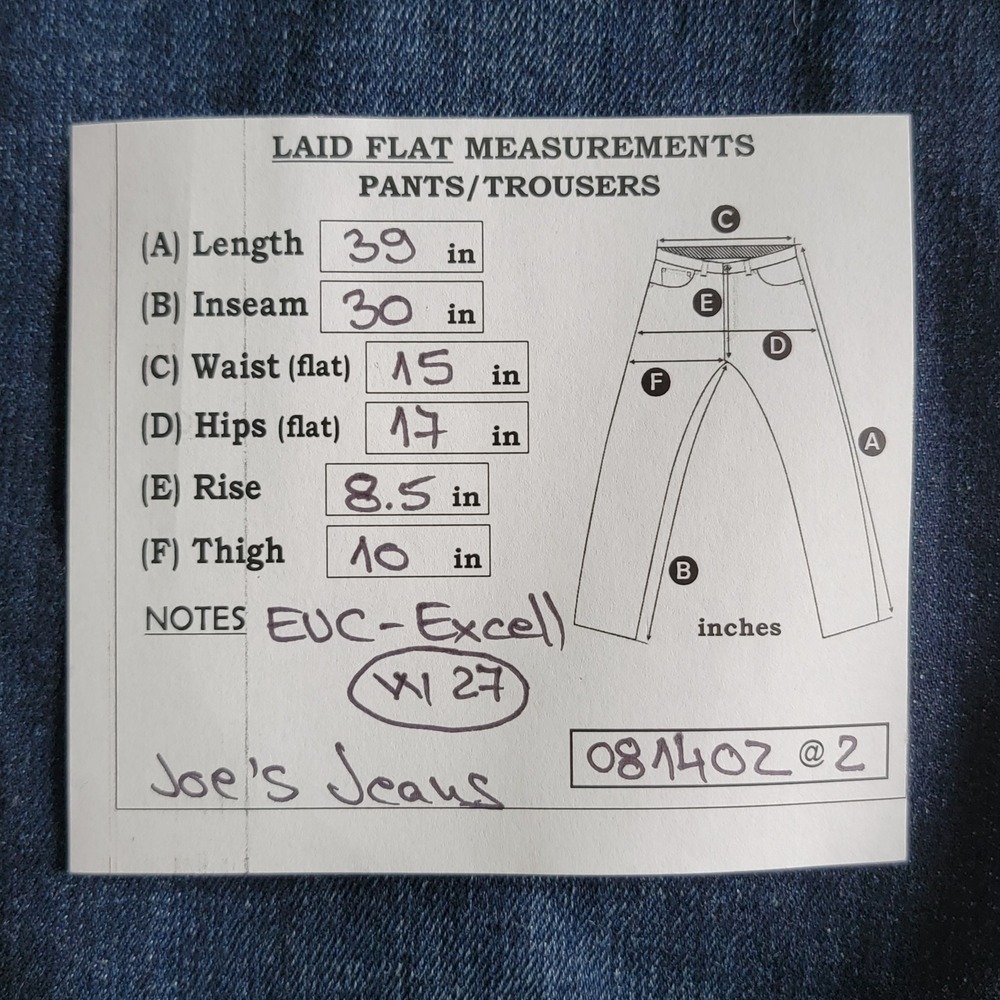 LAID FLAT MEASUREMENTS
PANTS/TROUSERS
(A) Length 39 in
(B) Inseam 30 in
(C) Waist (flat) 15 in
(D) Hips (flat) 17 in
(E) Rise 8.5 in
(F) Thigh 10 in
NOTES EUC-Excell
W 27
Joe's Jeans
081402 @ 2
C
E
D
F
A
B
inches